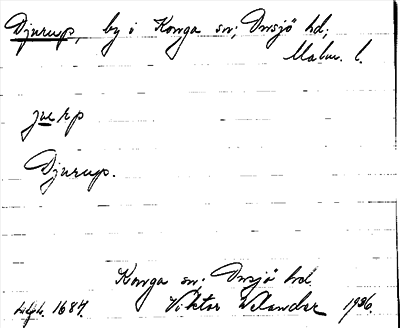 Djurup, by i Konga sn; Onsjö hd,
Malm. l.
Djurup.
Konga sn; Onsjö hd.
1687. Viktor Welander 1936.